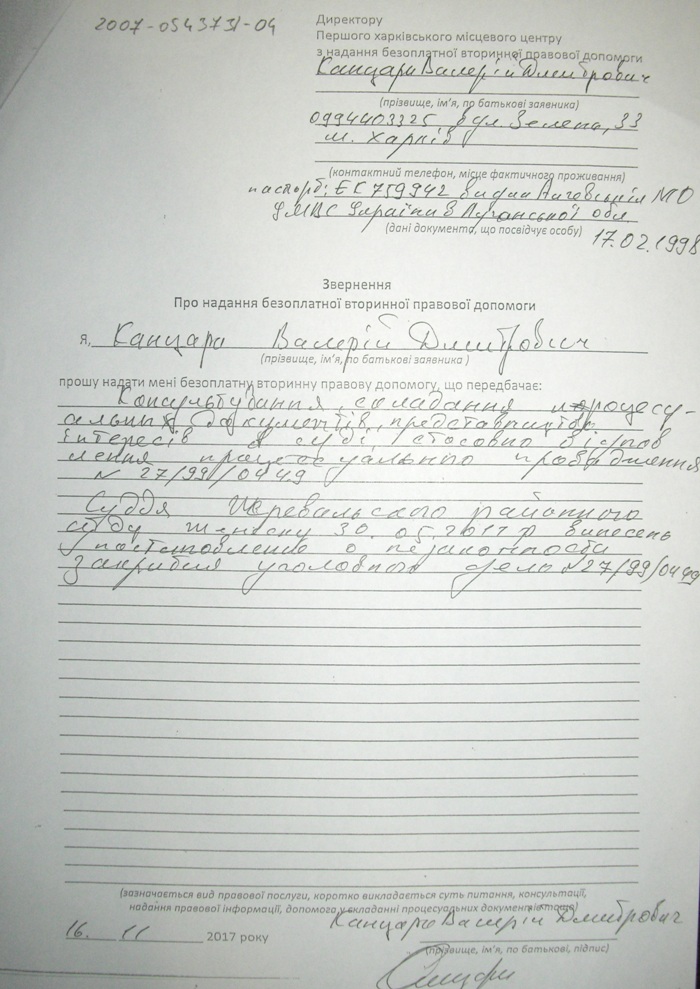 2007-0543731-04
Директору
Першого харківського місцевого центру
з надання безоплатної вторинної правової допомоги
Канцара Валерій Дмитрович
(прізвище, ім'я, по батькові заявника)
0994403325 вул Зелена, 33
м. Харків
(контактний телефон, місце фактичного проживання)
паспорт: ЕК 759942 МО
УМВС України в Луганської обл
(дані документа, що посвідчує особу) 17.02.1998
Звернення
Про надання безоплатної вторинної правової допомоги
Я, Канцара Валерій Дмитрович
(прізвище, ім'я, по батькові заявника )
прошу надати мені безоплатну вторинну правову допомогу, що передбачає:
Консультування, складання процесу-
альних документів, представництва
інтересів в суді, стосовно віднов
лення процесуального провадження
N 27/99/0449
Суддя районного
суду 30.05.2017р винесень
постановление о незаконности
закрития уголовного дела N27/99/0449
(зазначається вид правової послуги, коротко викладається суть питання, консультації,
надання правової інформації, допомога у складанні процесуальних документів тощо)
Канцара Валерій Дмитрович
16. 11 2017 року
(прізвище, ім'я, по батькові, підпис)